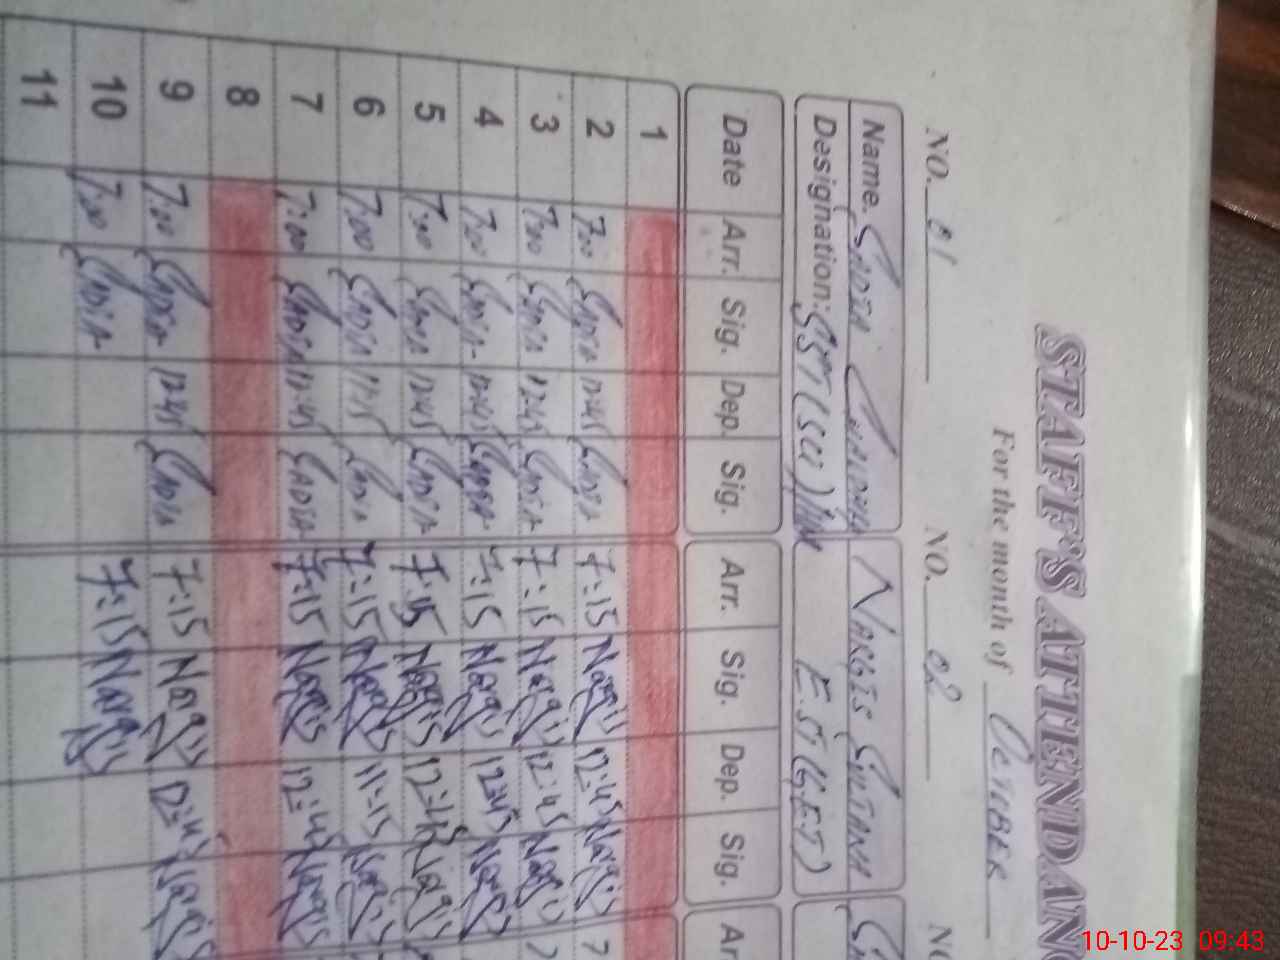 STAFF'S ATTENDANC
For the month of October
NO. 01 NO. 02 NO
Name. Sadia Nargis Sultana
Designation: SST (SCI) / HM E.S.T (G.E.T)
Date Arr. Sig. Dep. Sig. Arr. Sig. Dep. Sig. Ar
1
2 7:00 Sadia 12:45 Sadia 7:15 Nargis 12:45 Nargis 7
3 7:00 Sadia 12:45 Sadia 7:15 Nargis 12:45 Nargis 7
4 7:00 Sadia 12:45 Sadia 7:15 Nargis 12:45 Nargis
5 7:00 Sadia 12:45 Sadia 7:15 Nargis 12:45 Nargis
6 7:00 Sadia 11:15 Sadia 7:15 Nargis 11:15 Nargis
7 7:00 Sadia 12:45 Sadia 7:15 Nargis 12:45 Nargis
8
9 7:00 Sadia 12:45 Sadia 7:15 Nargis 12:45 Nargis
10 7:00 Sadia 7:15 Nargis
11
10-10-23 09:43